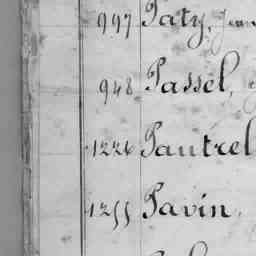 997 Paty, Jean
948 Passel,
1226 Pautrel
1255 Pavin,